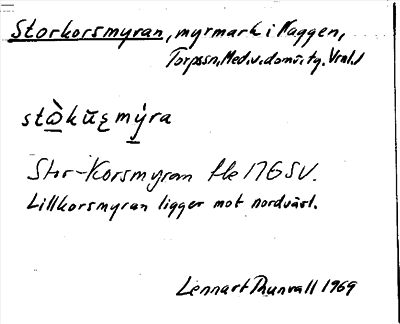 Storkorsmyran, myrmark i Naggen,
Torpssn, Med.v.doms.tg. Vrnl.l
Stor-Korsmyran fle 17G SV.
Lillkorsmyran ligger mot nordväst.
Lennart Thunvall 1969